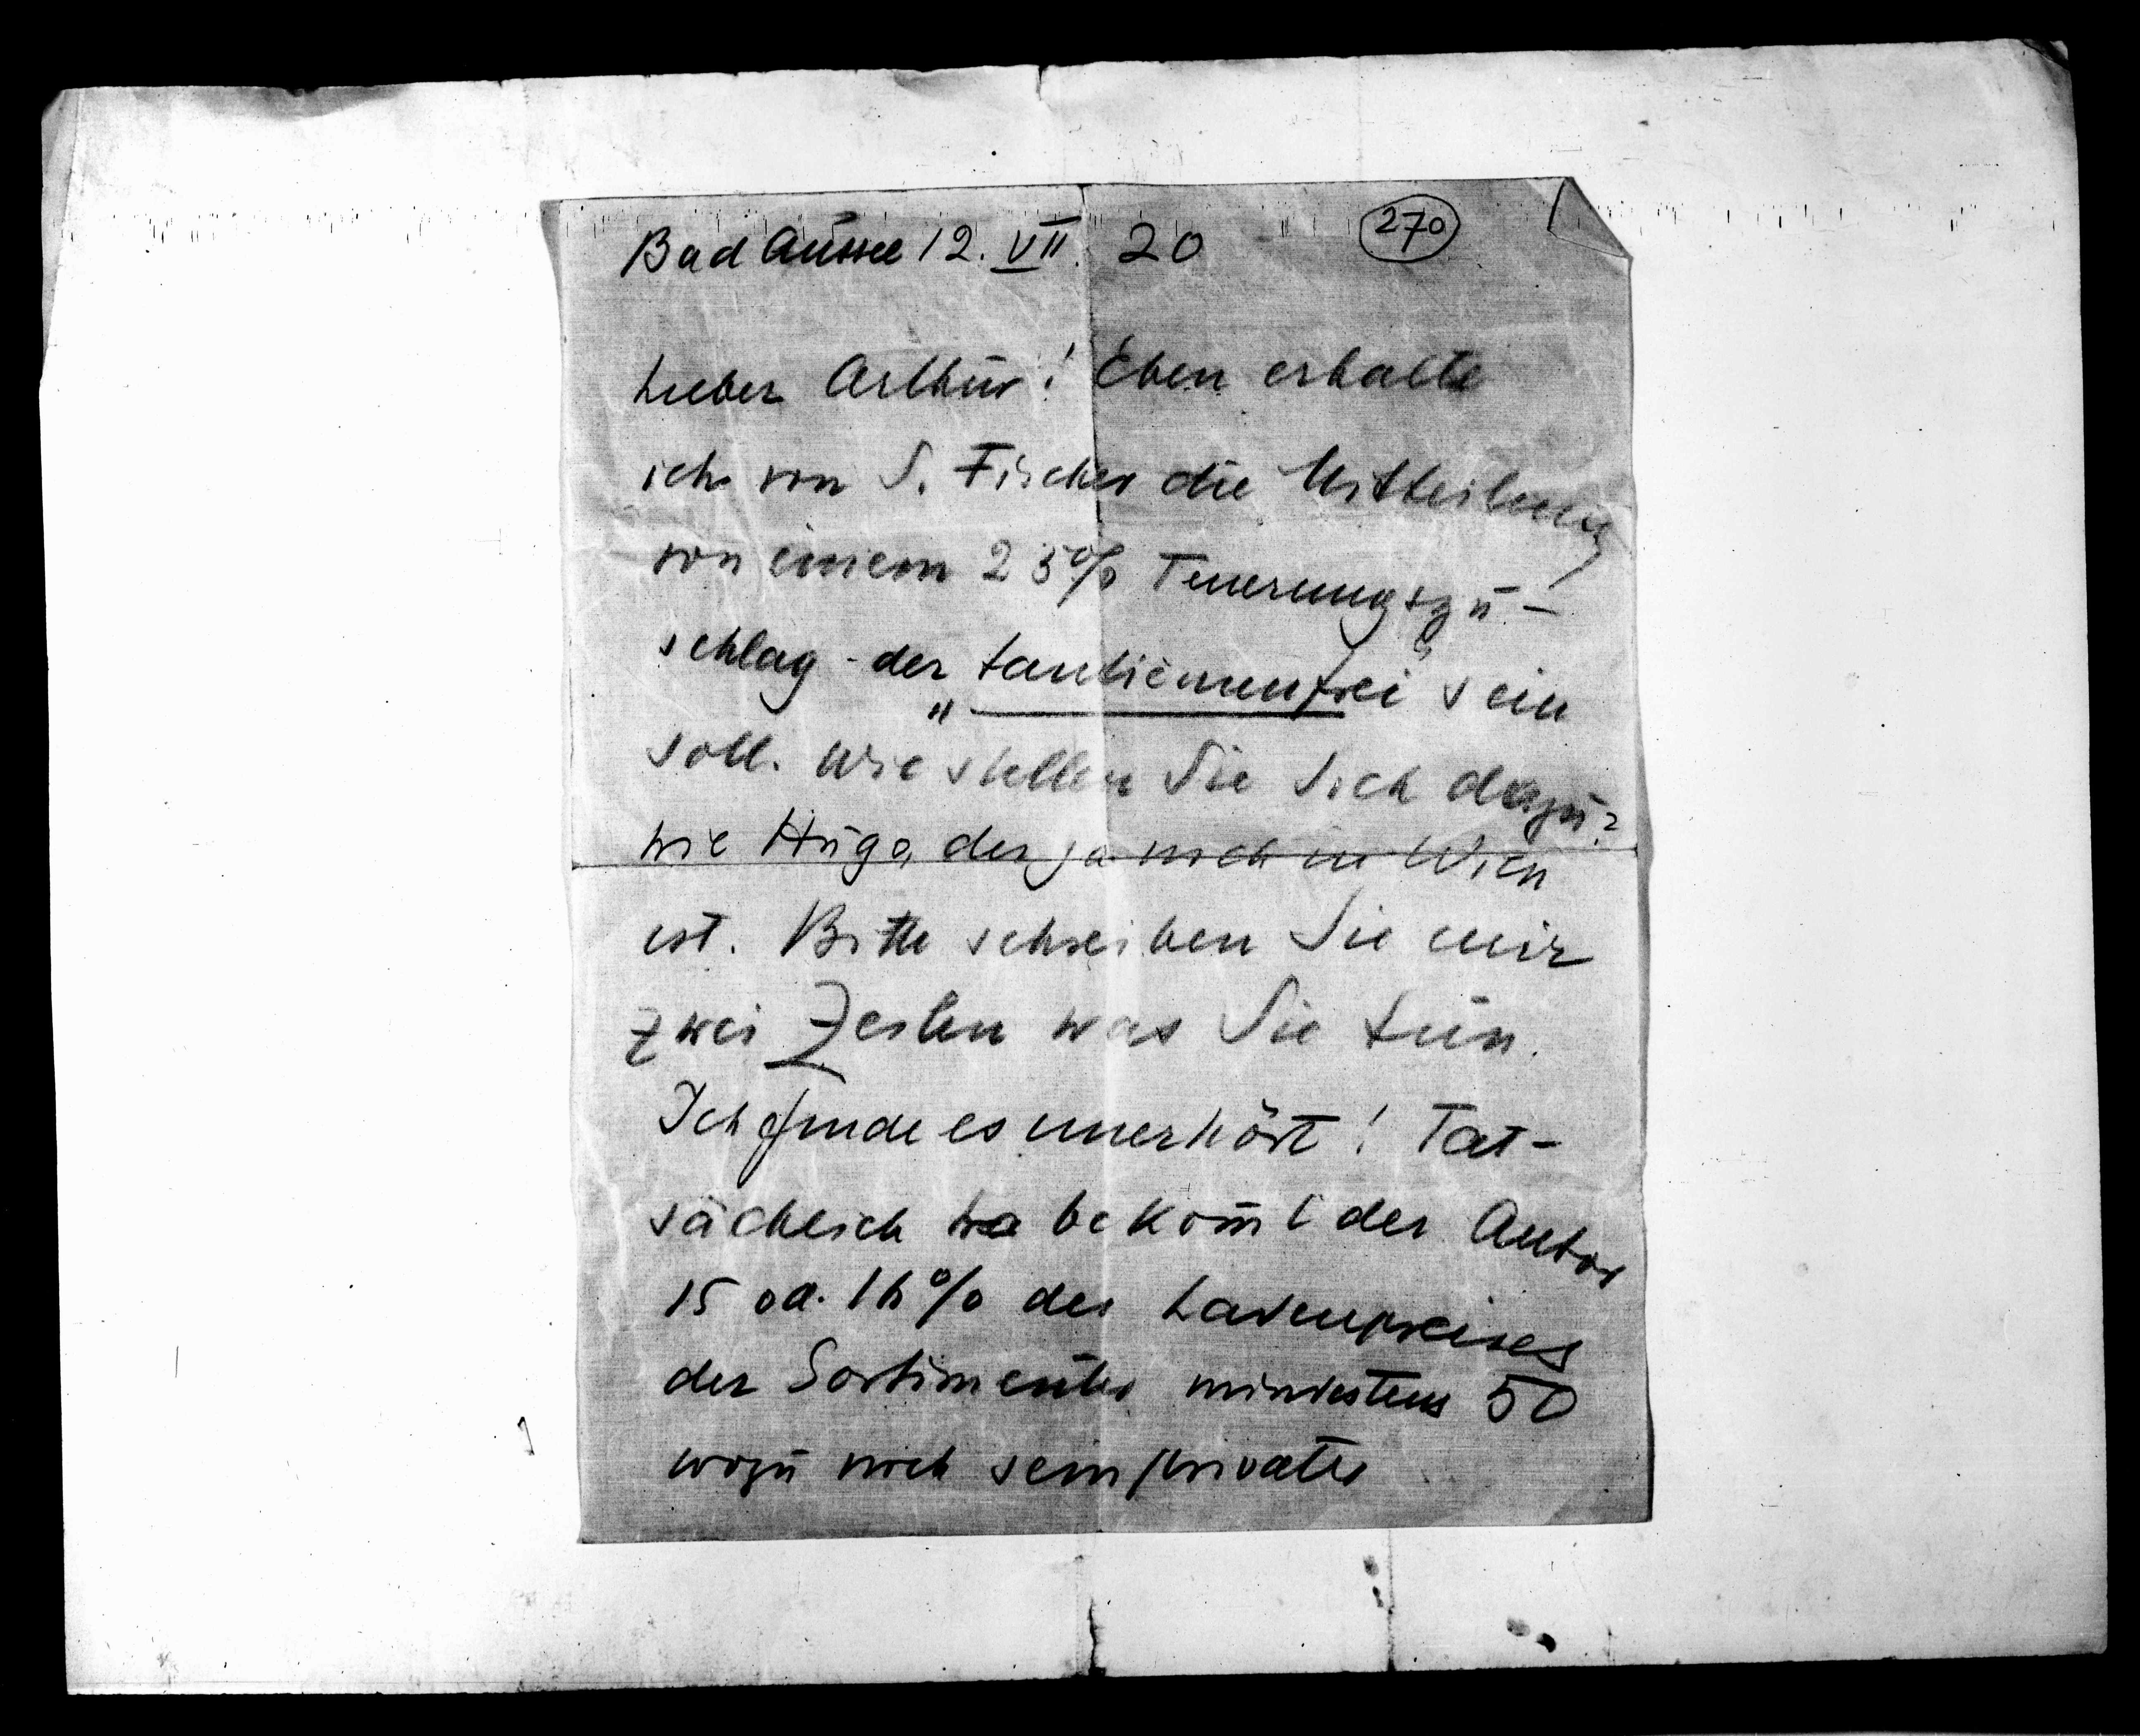 Bad Aussee 12. VII. 20
270
Lieber Arthur! Eben erhalte
ich von S. Fischer die Mitteilung
von einem 25% Teuerungszu-
schlag der „tantièmenfrei“ sein
soll. Wie stellen Sie sich dazu?
wie Hugo, der ja noch in Wien
ist. Bitte schreiben Sie mir
zwei Zeilen was Sie tun.
Ich finde es unerhört! Tat-
sächlich bekom̄t der Autor
15 od. % des Ladenpreises
der Sortimenter mindestens 50
wozu noch sein privater